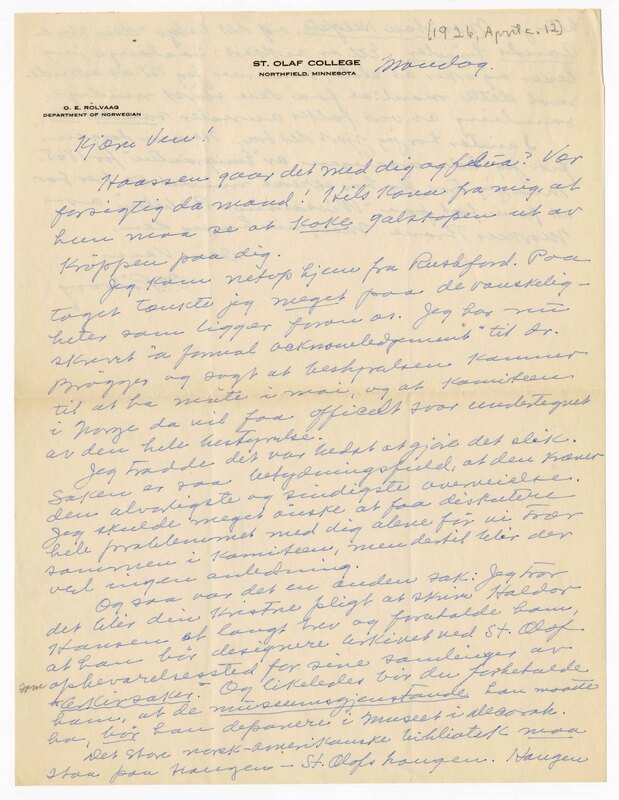 (1926, April c. 12)
ST. OLAF COLLEGE
NORTHFIELD, MINNESOTA
Mandag.
O. E. ROLVAAG
DEPARTMENT OF NORWEGIAN
Kjære Ven!
Haassen gaar det med dig og Vær
forsigtig da mand! Hils Kona fra mig, at
hun maa se at koke galskapen ut av
kroppen paa dig.
Jeg kom netop hjem fra Rushford. Paa
toget tænkte jeg meget paa de vanskelig-
heter som ligger foran os. Jeg har nu
skrevet "a formal acknowledgment" til Dr.
Brøgger og sagt at bestyrelsen kommer
til at ha møte i mai, og at komiteen
i Norge da vil faa officelt svar undertegnet
av den hele bestyrelse.
Jeg trodde det var bedst at gjøre det slik.
Saken er saa betydningsfuld, at den kræver
den alvorligste og sindigste overveielse.
Jeg skulde meget ønske at faa diskutere
hele problemmet med dig alene før vi trær
sammen i komiteen, men dertil blir der
vel ingen anledning.
Og saa var det en anden sak: Jeg tror
det blir din kristne pligt at skrive Haldor
Hansen et langt brev og foreholde ham,
at han bør designere arkivet ved St. Olaf
som opbevarelsessted for sine samlinger av
"arkivsaker." Og likeledes bør du foreholde
ham, at de museumsgjenstande han maatte
ha, bør han deponere i museet i Decorah.
Det store norsk-amerikanske bibliotek maa
staa paa Haugen – St. Olafs haugen. Haugen